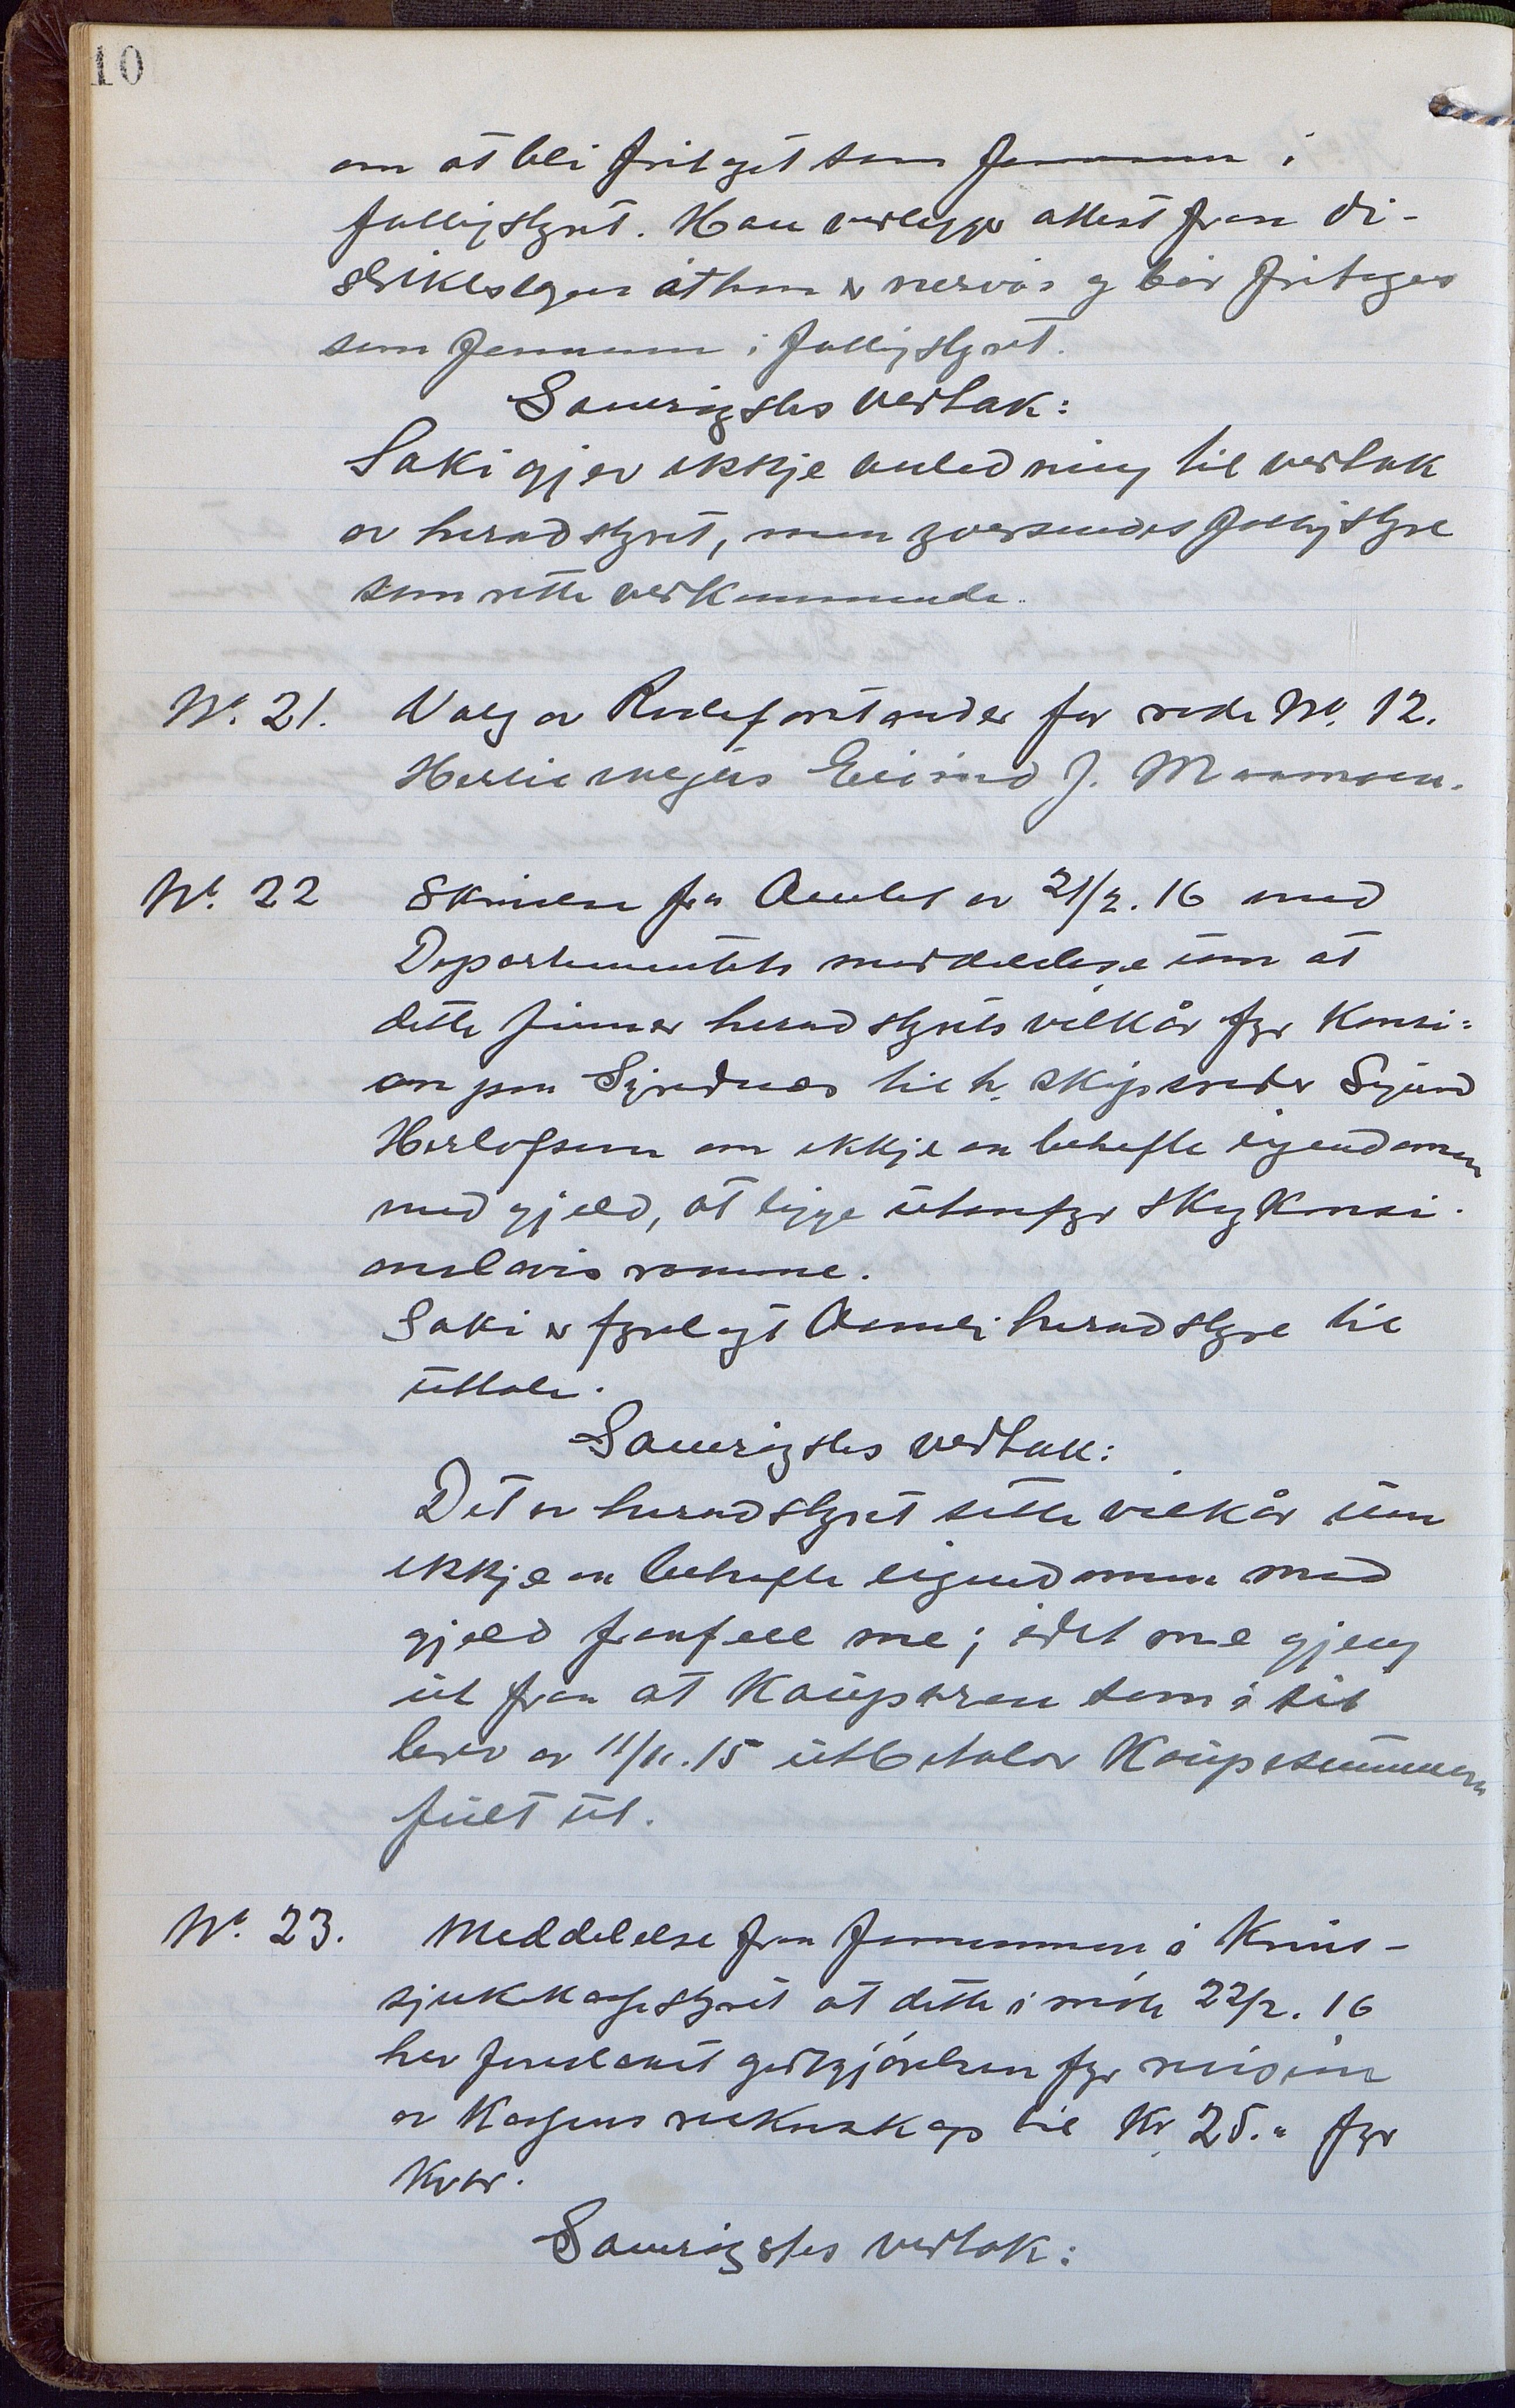 10
om at bli fritagt som formann i
fattigstyret. Han vedlegger attest fraa di-
striktslegen at han er nervøs og bør fritages
som formann i fattigstyret.
Samrøystes vedtak:
Saki gjev ikkje anledning til vedtak
av heradstyret, men yversendes fattigstyre
som rette vedkommende.
No. 21. Valg av Rodeforstander for rode No. 12.
Hertil velgtes Eivind J. Maamoen.
No. 22 Skrivelse fra Amtet av 21/2. 16 med
Departementets meddelelse um at
dette finner heradstyrets vilkår fyr Konsi=
on paa Syrednes til hr. skipsreder Sigurd
Herlofsen om ikkje an behefte eigendomen
med gjeld, at ligge utanfyr skogkonsi-
onslovis ramme.
Saki er fyrelagt Aamli heradstyre til
uttale.
Samrøystes vedtak:
Det av heradstyret sette vilkår um
ikkje an behefte eigendomen med
gjeld franfell me; idet me gjeng
ut fraa at Kauparen som i sit
brev av 11/11. 15 utbetalar Kaupesummen
fult ut.
No. 23. Meddelelse fraa formannen i Krins-
sjukekassestyret at dette i møte 22/2. 16
hev foreslaaet godtgjørelsen fyr revision
av Kassens rekneskap til Kr. 25.- fyr
Kvar.
Samrøystes vedtak: